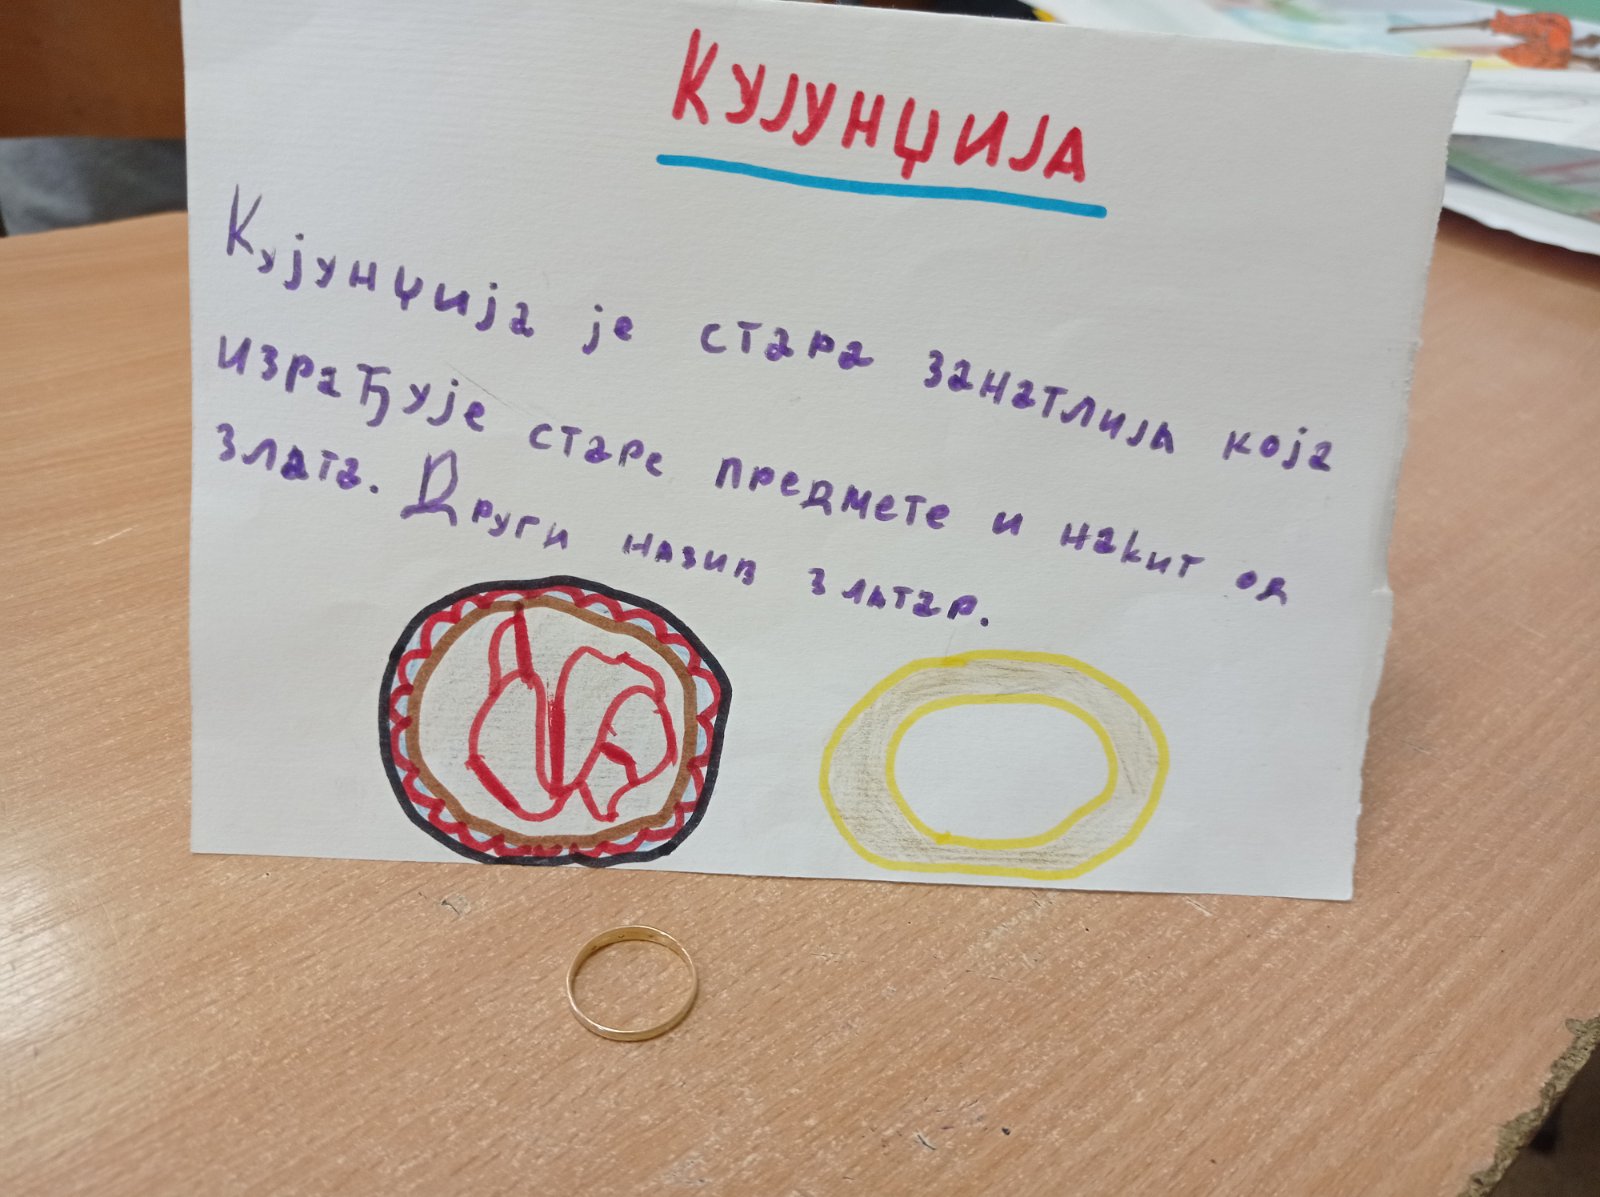 КУЈУНЏИЈА
Кујунџија је стара занатлија која
израђује старе предмете и накит од
злата. Други назив златар.